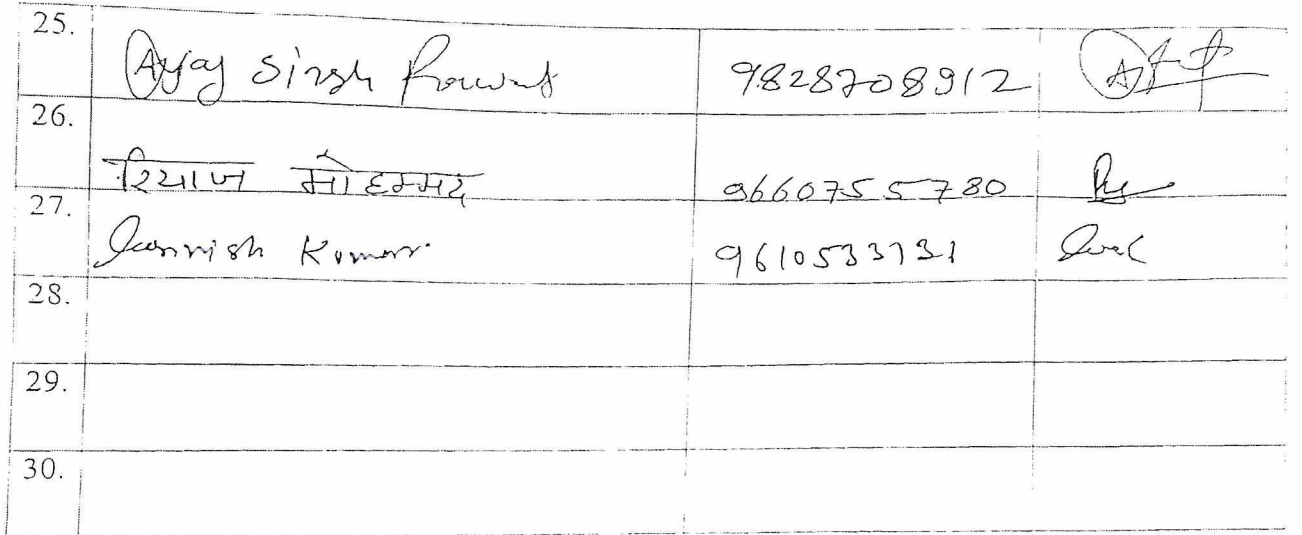 25. Ajay Singh Rawat 9828708912
26. रियाज मोहम्मद 9660755780
27. Kumar 9610533131
28.
29.
30.